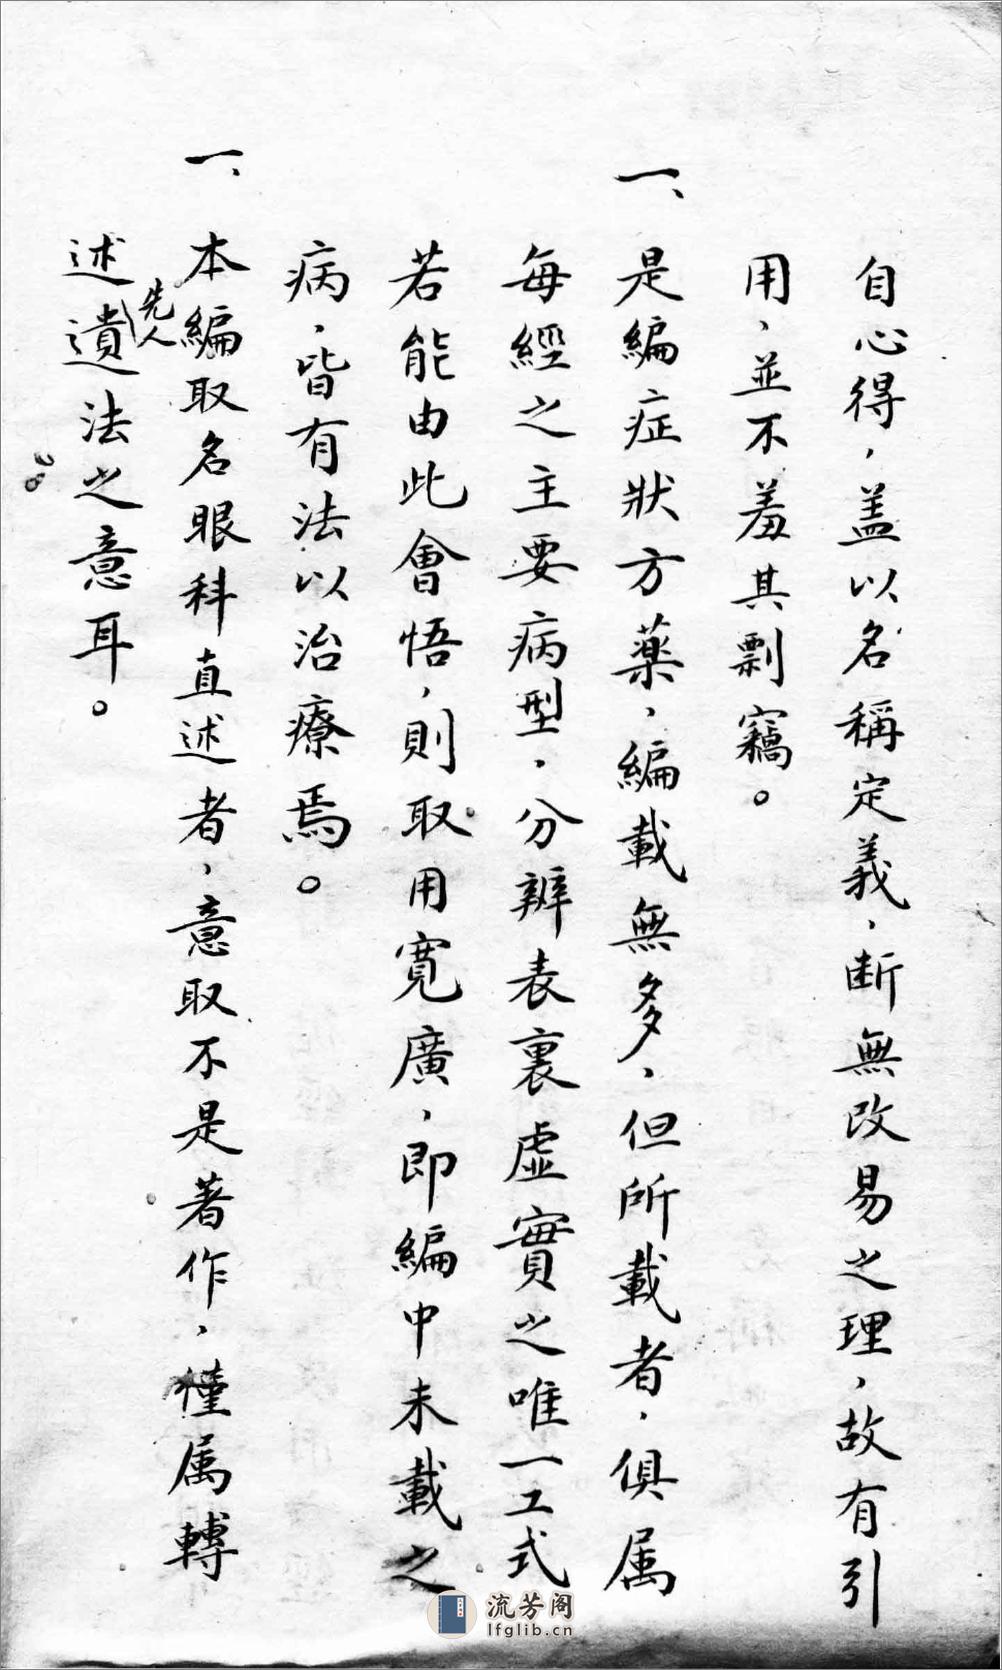 自心得，盖以名稱定義，断無改易之理，故有引
用，並不羞其剽竊。
一、是編症狀方藥，編載無多，但所載者，俱属
每經之主要病型，分辨表裏虚實之唯一工式
若能由此會悟，則取用寬廣，即編中未載之
病，皆有法以治療焉。
一、本編取名眼科直述者，意取不是著作，僅属轉
述先人遺法之意耳。
流芳阁
lfglib.cn